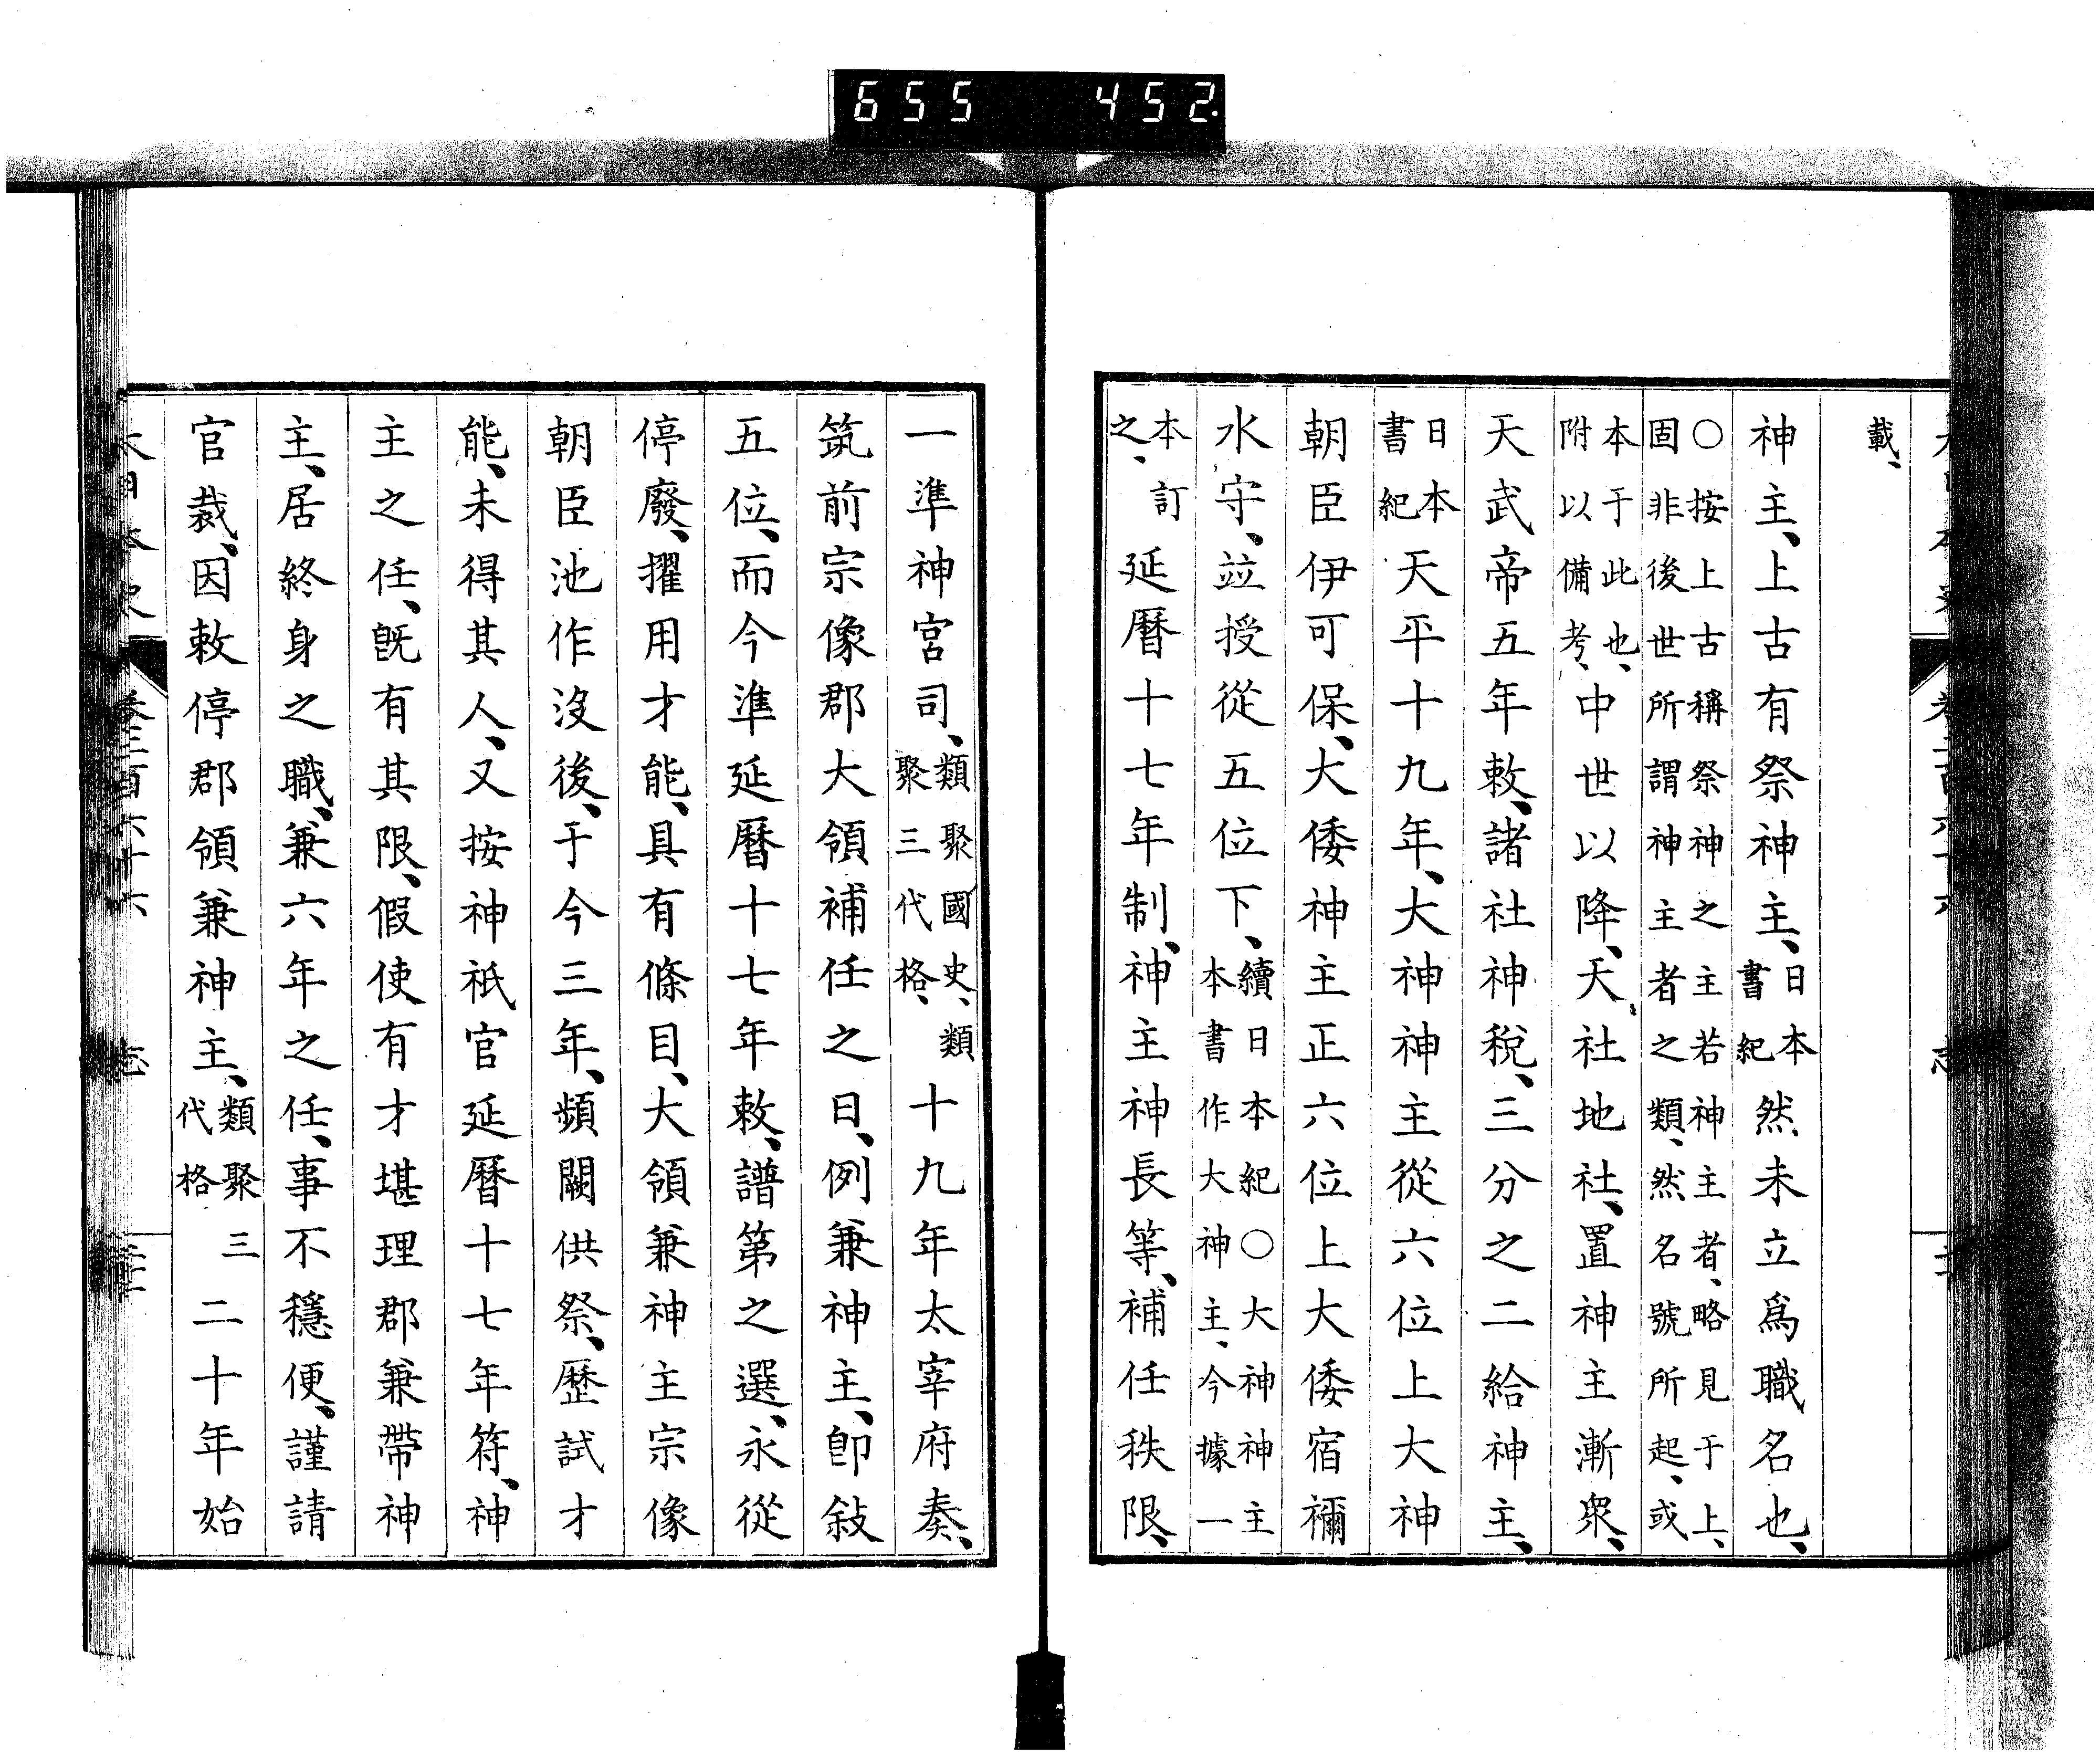 655 452
載、
神主、上古有祭神主、日本書紀然未立爲職名也、
○按上古稱祭神之主若神主者、略見于上、固非後世所謂神主者之類、然名號所起、或
本于此也、附以備考、中世以降、天社地社、置神主漸衆、
天武帝五年敕、諸社神税、三分之二給神主、
日本書紀天平十九年、大神神主從六位上大神
朝臣伊可保、大倭神主正六位上大倭宿禰
水守、竝授從五位下、續日本紀○大神神主一本書作大神主、今據
本訂之、延曆十七年制、神主神長等、補任秩限、
一準神宮司、類聚國史、類聚三代格、十九年太宰府奏、
筑前宗像郡大領補任之日、例兼神主、卽敍
五位、而今準延曆十七年敕、譜第之選、永從
停廢、擢用才能、具有條目、大領兼神主宗像
朝臣池作沒後、于今三年、頻闕供祭、歷試才
能、未得其人、又按神祇官延曆十七年符、神
主之任、旣有其限、假使有才堪理郡兼帶神
主、居終身之職、兼六年之任、事不穩便、謹請
官裁、因敕停郡領兼神主、類聚三代格二十年始
大日本史 卷二百六十六 志